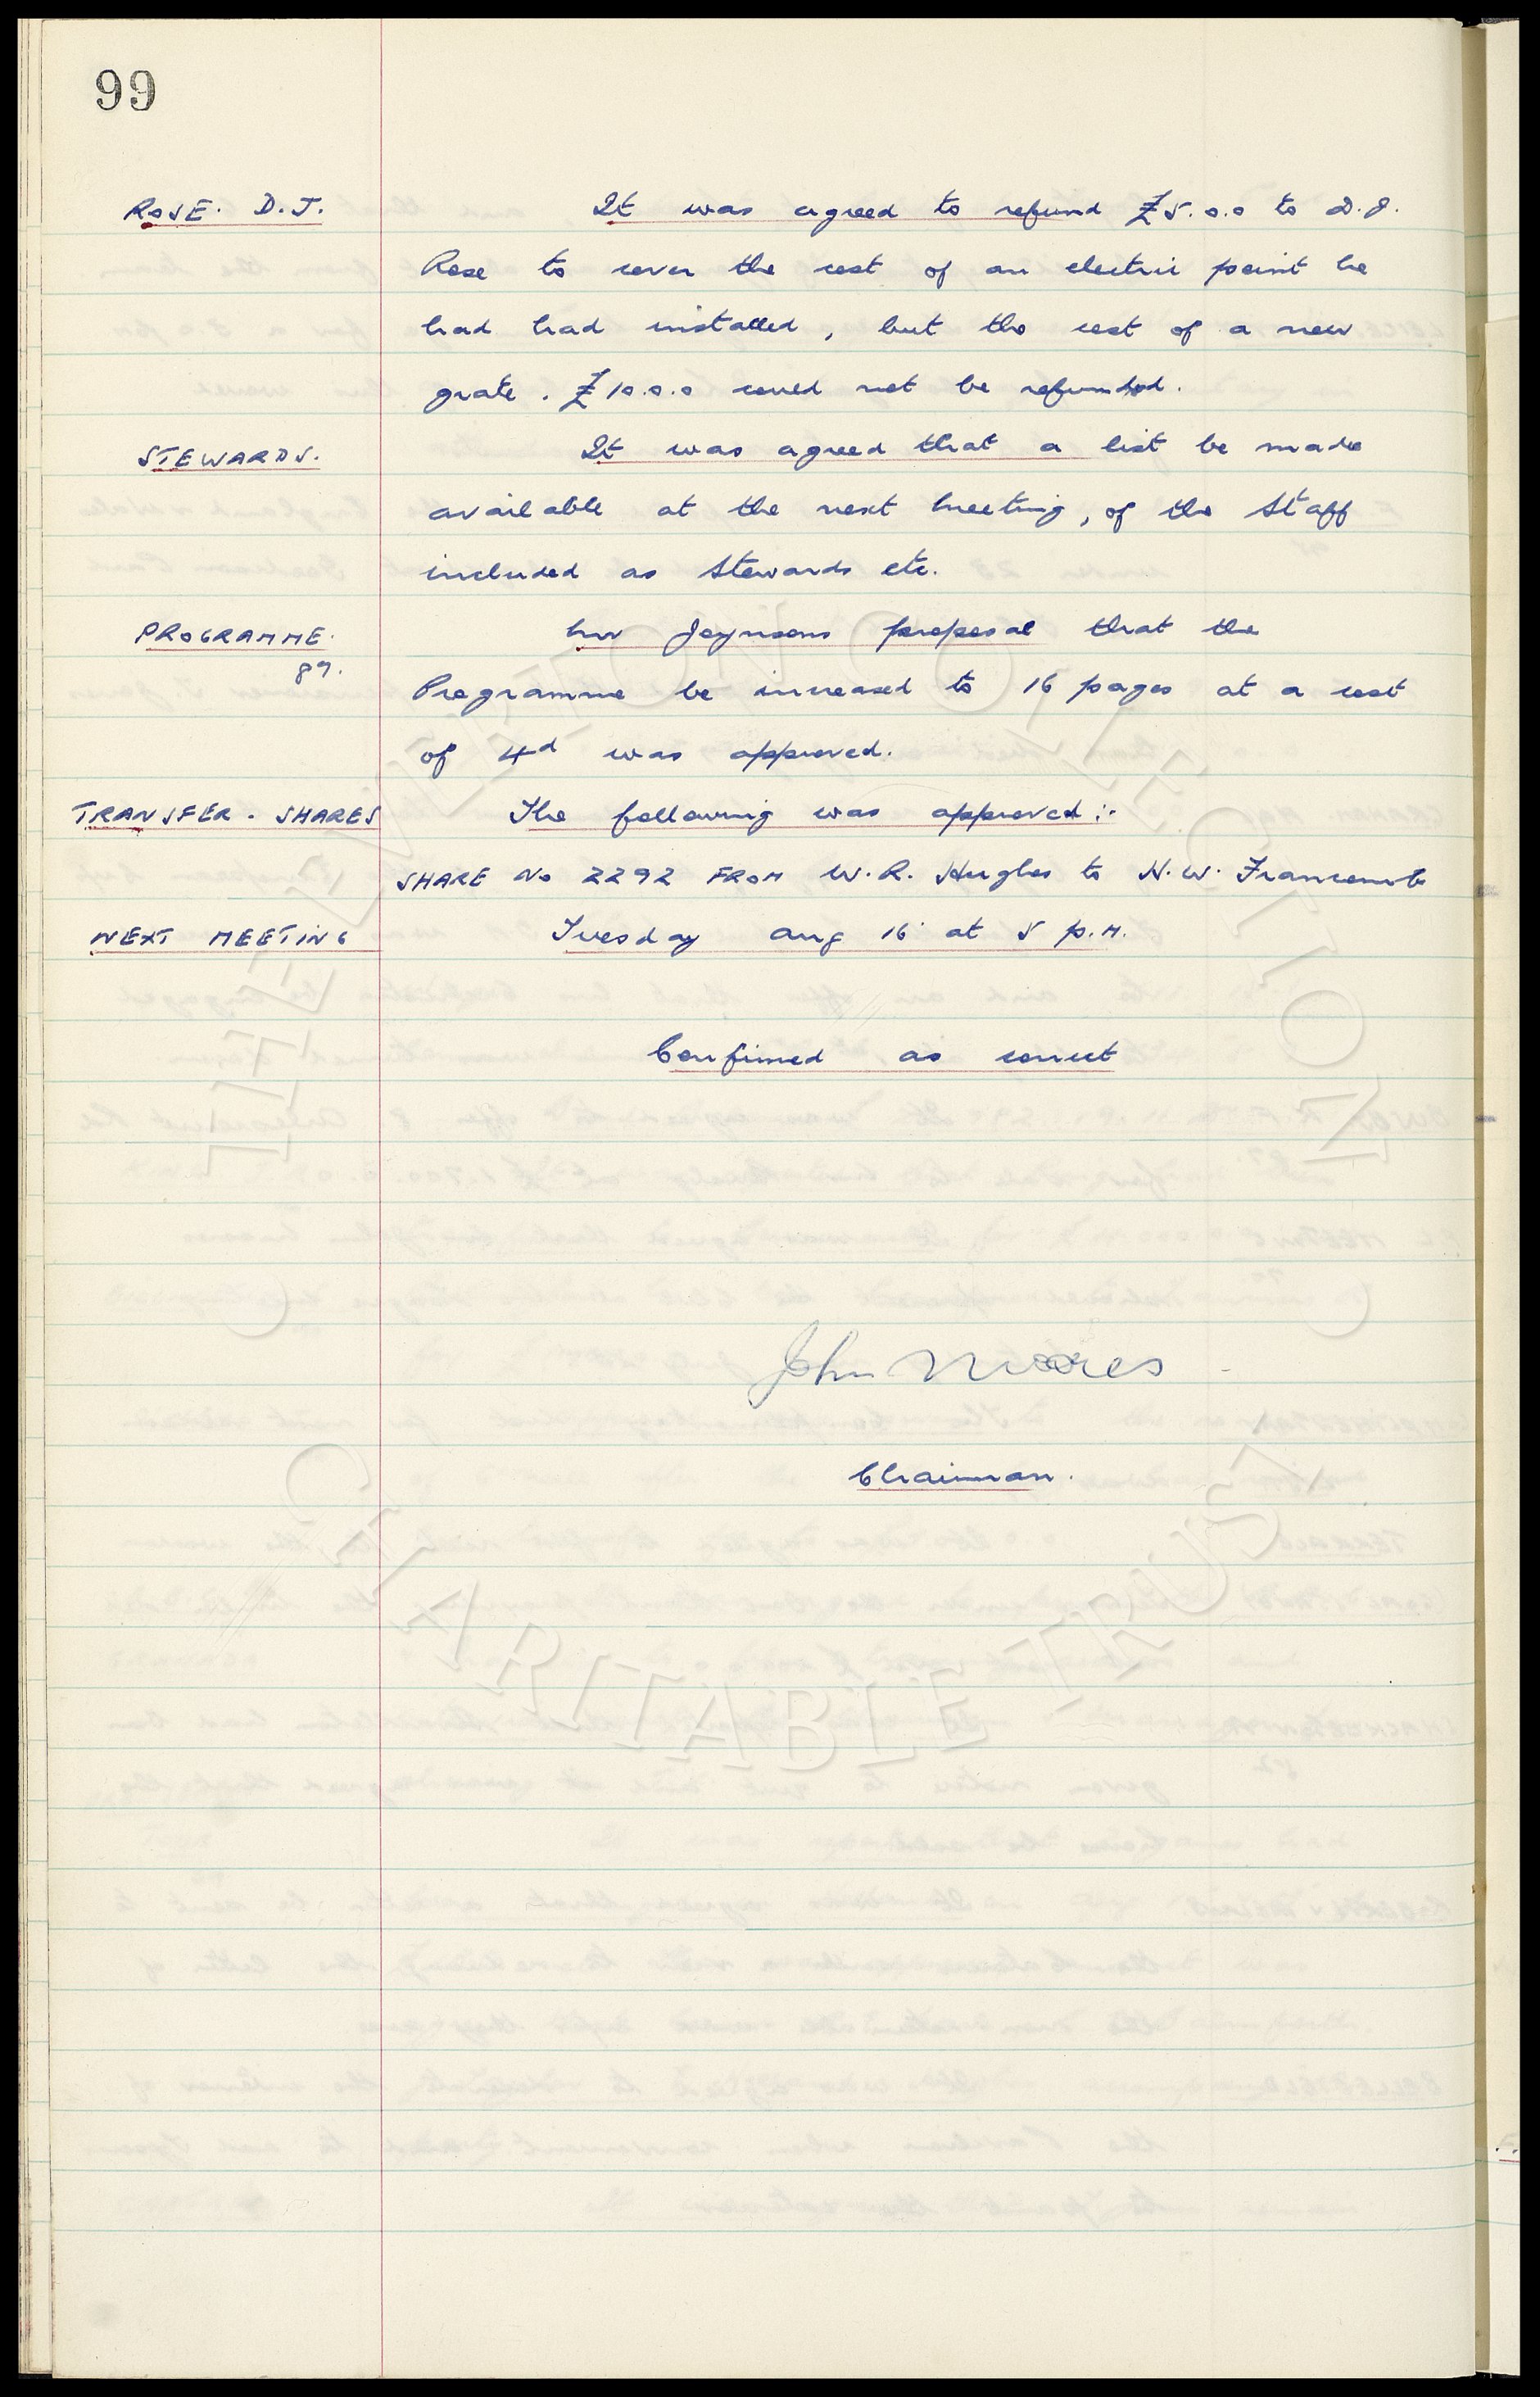 99
ROSE. D.J. It was agreed to refund £5.0.0 to D.J.
Rose to cover the cost of an electric point he
had had installed, but the cost of a new
grate. £10.0.0 could not be refunded.
STEWARDS. It was agreed that a list be made
available at the next meeting, of the Staff
included as Stewards etc.
PROGRAMME. Mr Joynsons proposal that the
89. Programme be increased to 16 pages at a cost
of 4d was approved.
TRANSFER. SHARES The following was approved:-
SHARE No 2292 FROM W.R. Hughes to H.W. Francomb
NEXT MEETING Tuesday Aug 16 at 5 p.m.
Confirmed as correct
John Moores
Chairman.
THE EVERTON COLLECTION
CHARITABLE TRUST